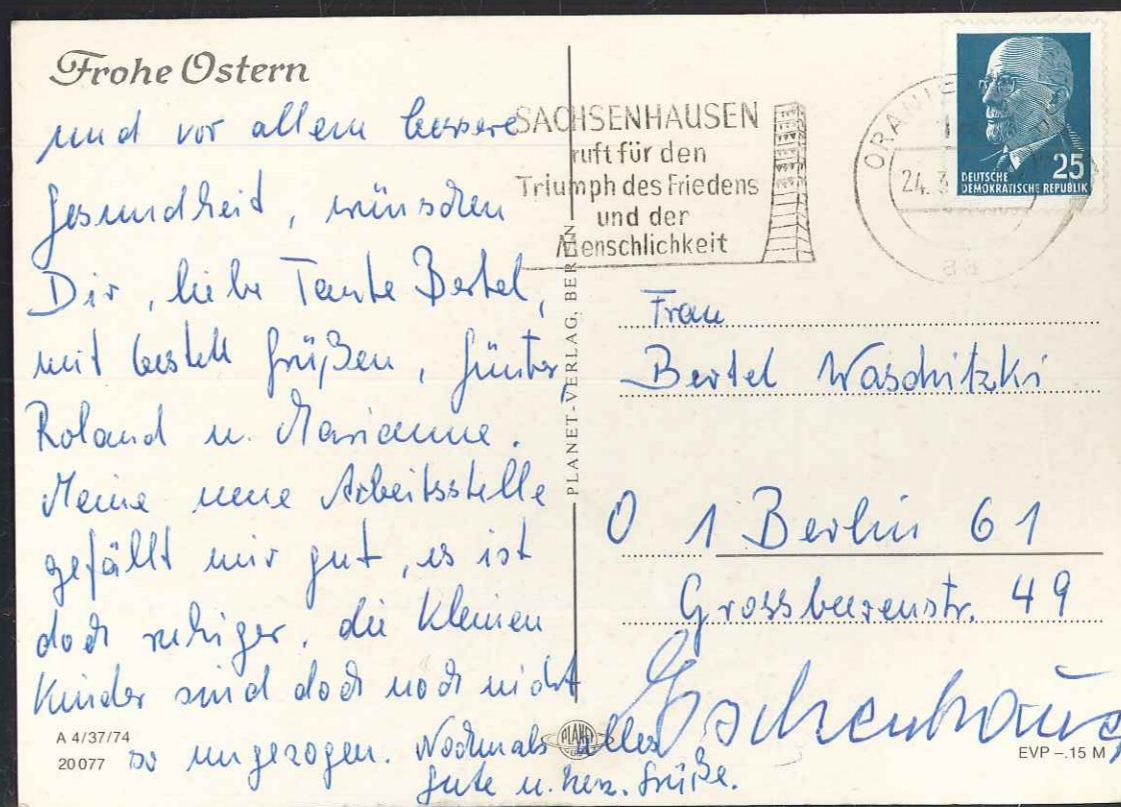 Frohe Ostern
und vor allem bessere
Gesundheit, wünschen
Dir, liebe Tante Bertel,
mit besten Grüßen, Günter,
Roland u. Marianne.
Meine neue Arbeitsstelle
gefällt mir gut, es ist
doch ruhiger, die kleinen
Kinder sind doch noch nicht
so ungezogen. Nochmals alles
Gute u. herz. Grüße.
A 4/37/74
20077
PLANET-VERLAG, BERLIN
PLANET
SACHSENHAUSEN
ruft für den
Triumph des Friedens
und der
Menschlichkeit
24. 3
DEUTSCHE
DEMOKRATISCHE REPUBLIK
25
Frau
Bertel Waschitzki
1 Berlin 61
Grossbeerenstr. 49
EVP –.15 M